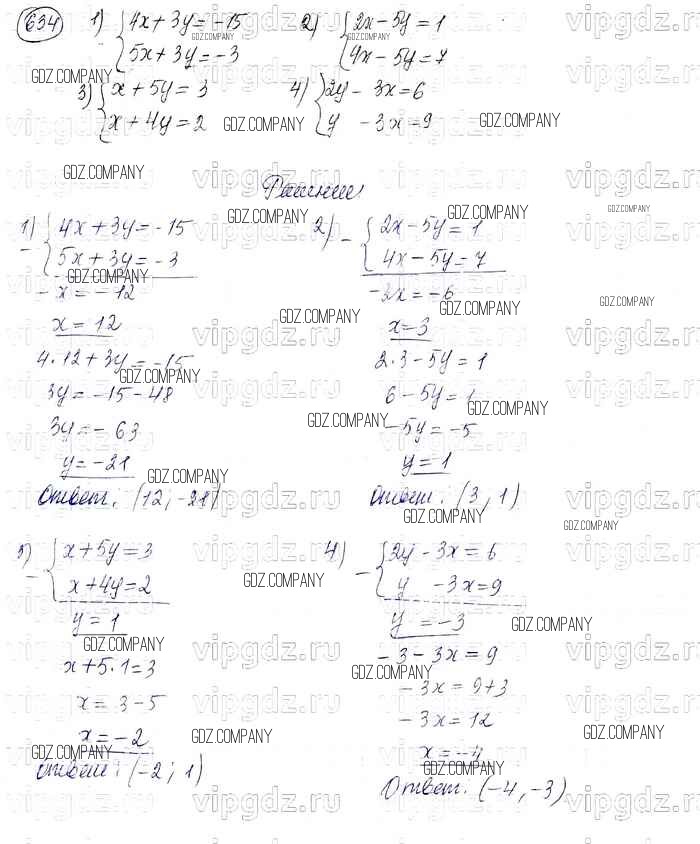 634 1) {4x + 3y = -15 2) {2x - 5y = 1
5x + 3y = -3 4x - 5y = 7
3) {x + 5y = 3 4) {2y - 3x = 6
x + 4y = 2 y - 3x = 9
Решение
1) - {4x + 3y = -15
5x + 3y = -3
-x = -12
x = 12
4·12 + 3y = -15
3y = -15 - 48
3y = -63
y = -21
Ответ: (12, -21)
2) - {2x - 5y = 1
4x - 5y = 7
-2x = -6
x = 3
2·3 - 5y = 1
6 - 5y = 1
-5y = -5
y = 1
Ответ: (3, 1)
3) - {x + 5y = 3
x + 4y = 2
y = 1
x + 5·1 = 3
x = 3 - 5
x = -2
Ответ: (-2; 1)
4) - {2y - 3x = 6
y - 3x = 9
y = -3
-3 - 3x = 9
-3x = 9 + 3
-3x = 12
x = -4
Ответ. (-4, -3)
GDZ.COMPANY
vipgdz.ru